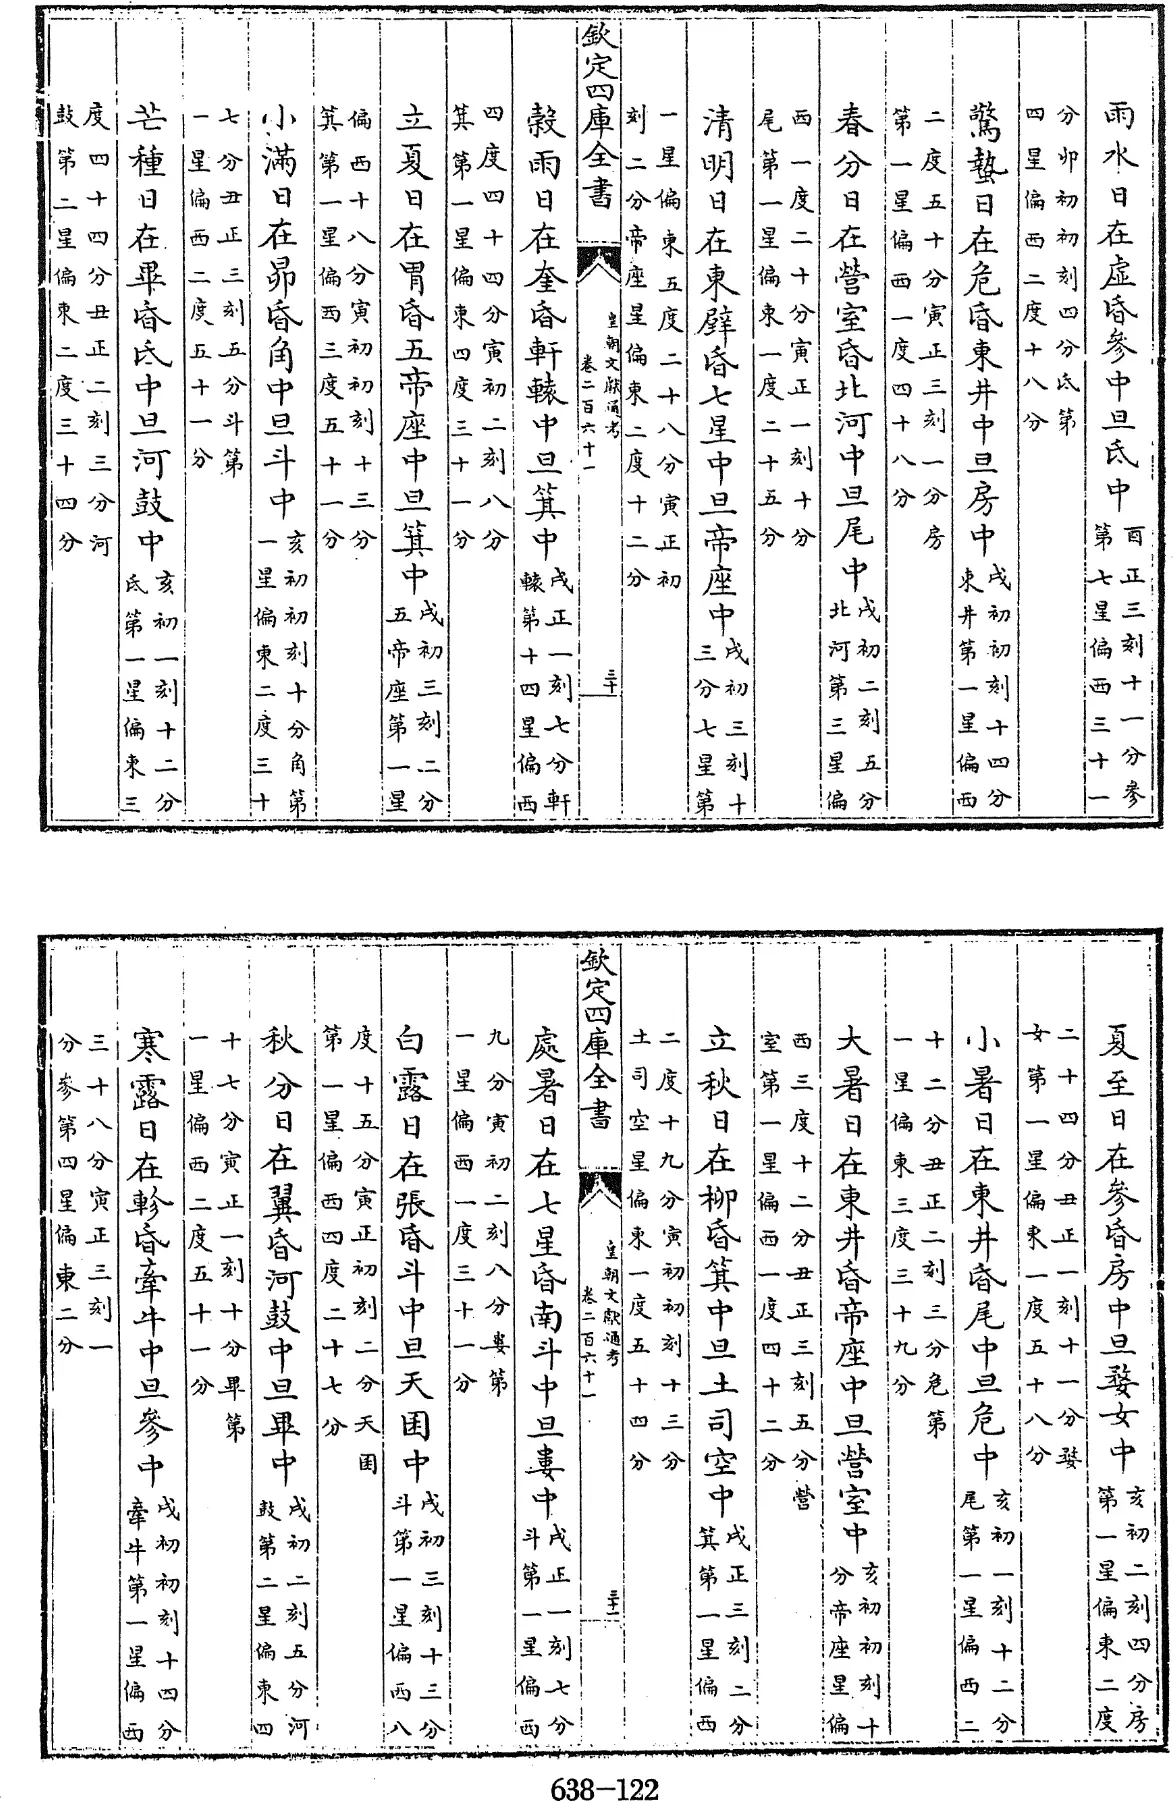 雨水日在虛昏參中旦氐中酉正三刻十一分參
第七星偏西三十一
分卯初初刻四分氐第
四星偏西二度十八分
驚蟄日在危昏東井中旦房中戌初初刻十四分
東井第一星偏西
二度五十分寅正三刻一分房
第一星偏西一度四十八分
春分日在營室昏北河中旦尾中戌初二刻五分
北河第三星偏
西一度二十分寅正一刻十分
尾第一星偏東一度二十五分
清明日在東壁昏七星中旦帝座中戌初三刻十
三分七星第
一星偏東五度二十八分寅正初
刻二分帝座星偏東二度十二分
欽定四庫全書
皇朝文獻通考
卷二百六十一
三十
穀雨日在奎昏軒轅中旦箕中戌正一刻七分軒
轅第十四星偏西
四度四十四分寅初二刻八分
箕第一星偏東四度三十一分
立夏日在胃昏五帝座中旦箕中戌初三刻二分
五帝座第一星
偏西十八分寅初初刻十三分
箕第一星偏西三度五十一分
小滿日在昴昏角中旦斗中亥初初刻十分角第
一星偏東二度三十
七分丑正三刻五分斗第
一星偏西二度五十一分
芒種日在畢昏氐中旦河鼓中亥初一刻十二分
氐第一星偏東三
度四十四分丑正二刻三分河
鼓第二星偏東二度三十四分
夏至日在參昏房中旦婺女中亥初二刻四分房
第一星偏東二度
二十四分丑正一刻十一分婺
女第一星偏東一度五十八分
小暑日在東井昏尾中旦危中亥初一刻十二分
尾第一星偏西二
十二分丑正二刻三分危第
一星偏東三度三十九分
大暑日在東井昏帝座中旦營室中亥初初刻十
分帝座星偏
西三度十二分丑正三刻五分營
室第一星偏西一度四十二分
立秋日在柳昏箕中旦土司空中戌正三刻二分
箕第一星偏西
二度十九分寅初初刻十三分
土司空星偏東一度五十四分
欽定四庫全書
皇朝文獻通考
卷二百六十一
三十一
處暑日在七星昏南斗中旦婁中戌正一刻七分
斗第一星偏西
九分寅初二刻八分婁第
一星偏西一度三十一分
白露日在張昏斗中旦天囷中戌初三刻十三分
斗第一星偏西八
度十五分寅正初刻二分天囷
第一星偏西四度二十七分
秋分日在翼昏河鼓中旦畢中戌初二刻五分河
鼓第二星偏東四
十七分寅正一刻十分畢第
一星偏西二度五十一分
寒露日在軫昏牽牛中旦參中戌初初刻十四分
牽牛第一星偏西
三十八分寅正三刻一
分參第四星偏東二分
638-122